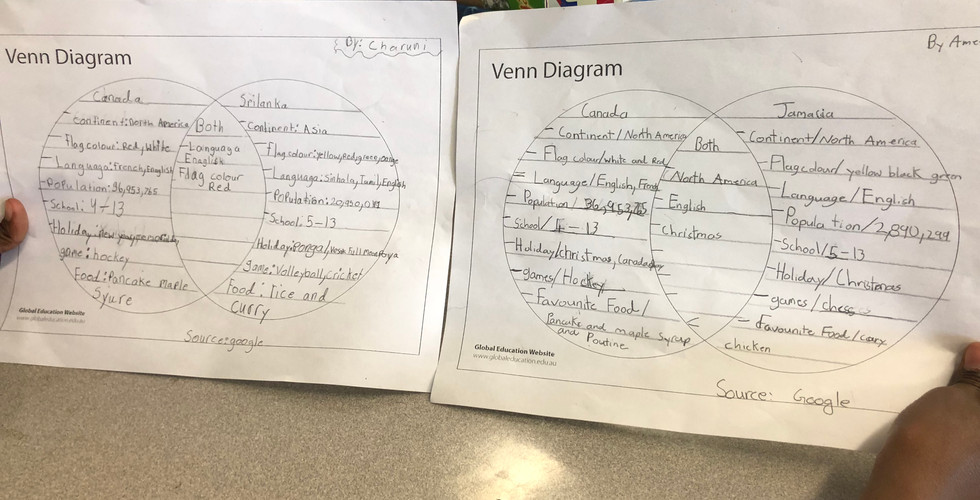 Venn Diagram
By: Charuni
Canada
continent: North America
Flag colour: Red, White
Languaga: French, English
Population: 36,953,765
School: 4-13
Holiday:
game: hockey
Food: Pancake maple
Syure
Both
Lainguaga
Enaglish
Flag colour
Red
Srilanka
Continent: Asia
Flag colour: Yellow, Red, green,
Languaga: Sinhala, Tamil, English
Population: 20,950,041
School: 5-13
Holiday: Pongal,
game: Volleyball, cricket
Food: rice and
curry
Global Education Website
www.globaleducation.edu.au
Source: google
Venn Diagram
By Ame
Canada
- Continent/North America
- Flag colour/white and Red
- Language/English,
- Population/ 36,953,765
- School/ 4-13
- Holiday/Christmas,
- games/Hockey
- Favourite Food/
Pancake and maple syrup
and Poutine
Both
North America
- English
- Christmas
Jamaica
- Continent/North America
- Flag colour/ yellow black green
- Language/English
- Population/2,890,299
- School/5-13
- Holiday/Christmas
- games/chess
- Favourite Food/
chicken
Global Education Website
www.globaleducation.edu.au
Source: Google